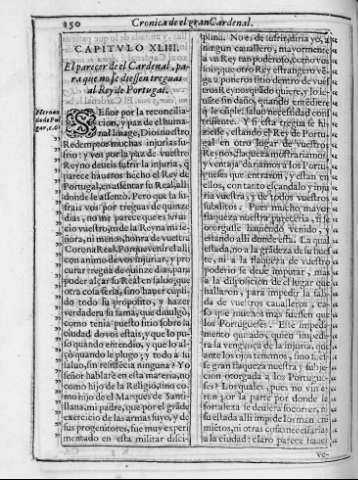 250 Cronica de el gran Cardenal.
CAPITVLO XLIII.
El parecer de el Cardenal, pa-
ra que no se diessen treguas
al Rey de Portugal.
SEñor por la reconcilia-
cion, y paz de el huma-
nal linage, Dios nuestro
Redemptor muchas injurias su-
frio: y vos por la paz de vuestro
Reyno deueis sufrir la injuria, q
parece haueros hecho el Rey de
Portugal, en assentar su Real, alli
donde le assentò. Pero que la su-
frais vos por treguas de quinze
dias, no me parece que es serui-
cio vuestro, ni de la Reyna mi se-
ñora, ni menos, honra de vuestra
Corona Real. Porque venir el alli
con animo de vos injuriar, y pro
curar tregua de quinze dias, para
poder alçar su Real en saluo, que
otra cosa seria, sino hauer cupli-
do todo su proposito, y hazer
verdadera su fama, que diuulgò,
como tenia puesto sitio sobre la
ciudad do vos estais, y que lo pu-
so quãdo entendio, y que lo al-
çò quando le plugo; y todo a su
saluo, sin resistencia ninguna? Yo
señor hablarè en esta materia, no
como hijo de la Religiõ, sino co-
mo hijo de el Marques de Santi-
llana, mi padre, que por el grãde
exercicio de las armas suyo, y de
sus progenitores, fue muy experi
mentado en esta militar disci-
plina. No es de sufrir, diria yo, a
ningun cauallero, mayormente
a vn Rey tan poderoso, como vos
sois, que otro Rey estrangero vẽ-
ga a poneros sitio dentro de vue-
stros Reynos quãdo quiere, y lo le-
uãte sin daño, quando entendiere
que le cumple, saluo necesidad cons-
triñente. Y si esta tregua se hi-
ziesse, estando el Rey de Portu-
gal en otro lugar de vuestros
Reynos,
ventaja dariamos a los Portu-
gueses que entraron, y estan en
ellos, con tanto escandalo y inju-
ria vuestra, y de todos vuestros
subditos: Pues mucho mayor
flaqueza nuestra pareceria, si se
otorgasse hauiendo venido, y
estando alli donde està. La qual
estada, no a la grãdeza de su hues
te, ni a la flaqueza de vuestro
poderio se deue imputar, mas
a la disposicion de el lugar que
hallaron, para impedir la sali-
da de vuestros caualleros, ca-
so que muchos mas fuessen que
los Portugueses. Este impedi-
mento quitado, quien impedi-
ra la vengança de la injuria, que
ante los ojos tenemos, sino fues-
se gran flaqueza nuestra y subje-
cion otorgada a los Portugue-
ses? Los quales, pues no vinie-
ron por la parte por donde la
fortaleza se deuiera socorrer, ni
su estada alli impide los mãteni-
miẽtos, ni otras cosas necessarias
a la ciudad: claro parece hauer
ve-